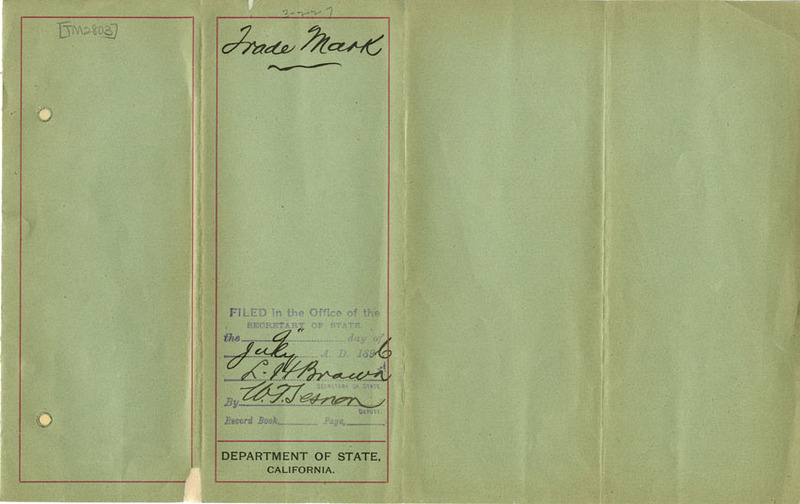 [TM2803]
2-227
Trade Mark
FILED in the Office of the
SECRETARY OF STATE
the 9" day of
July A. D. 1896
L. H Brown
SECRETARY OF STATE
By W. T. Sesnon
DEPUTY.
Record Book Page
DEPARTMENT OF STATE,
CALIFORNIA.